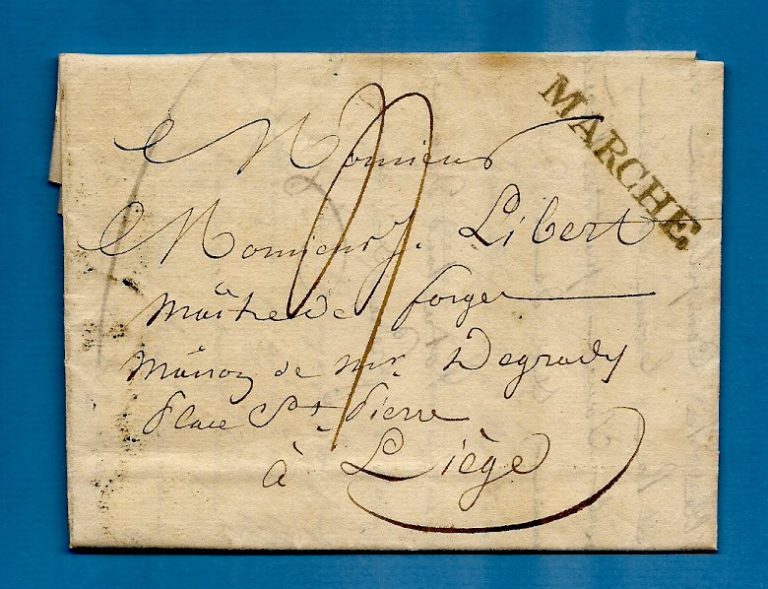 MARCHE
Monsieur
Monsieur J. Libert
Maitre de forges
Maison de mr. Degrady
Place St. Pierre
à Liège